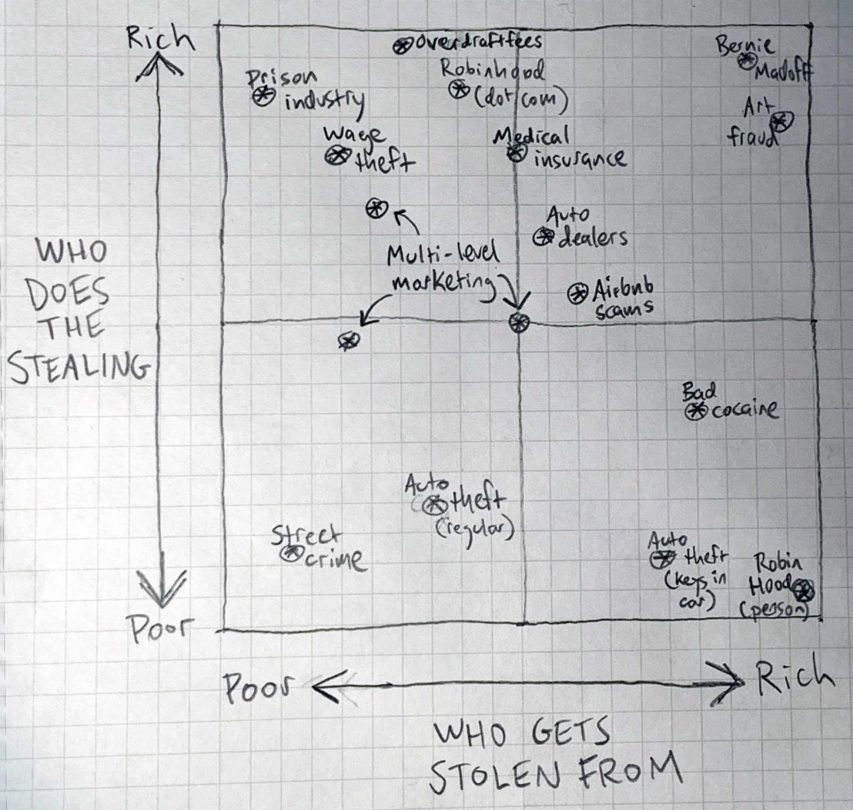 Rich
Overdraft fees
Bernie
Madoff
Prison
industry
Robinhood
(dot com)
Art
fraud
Wage
theft
Medical
insurance
Auto
dealers
Multi-level
marketing
Airbnb
scams
WHO
DOES
THE
STEALING
Bad
cocaine
Auto
theft
(regular)
Street
crime
Auto
theft
(keys in
car)
Robin
Hood
(person)
Poor
Poor
Rich
WHO GETS
STOLEN FROM